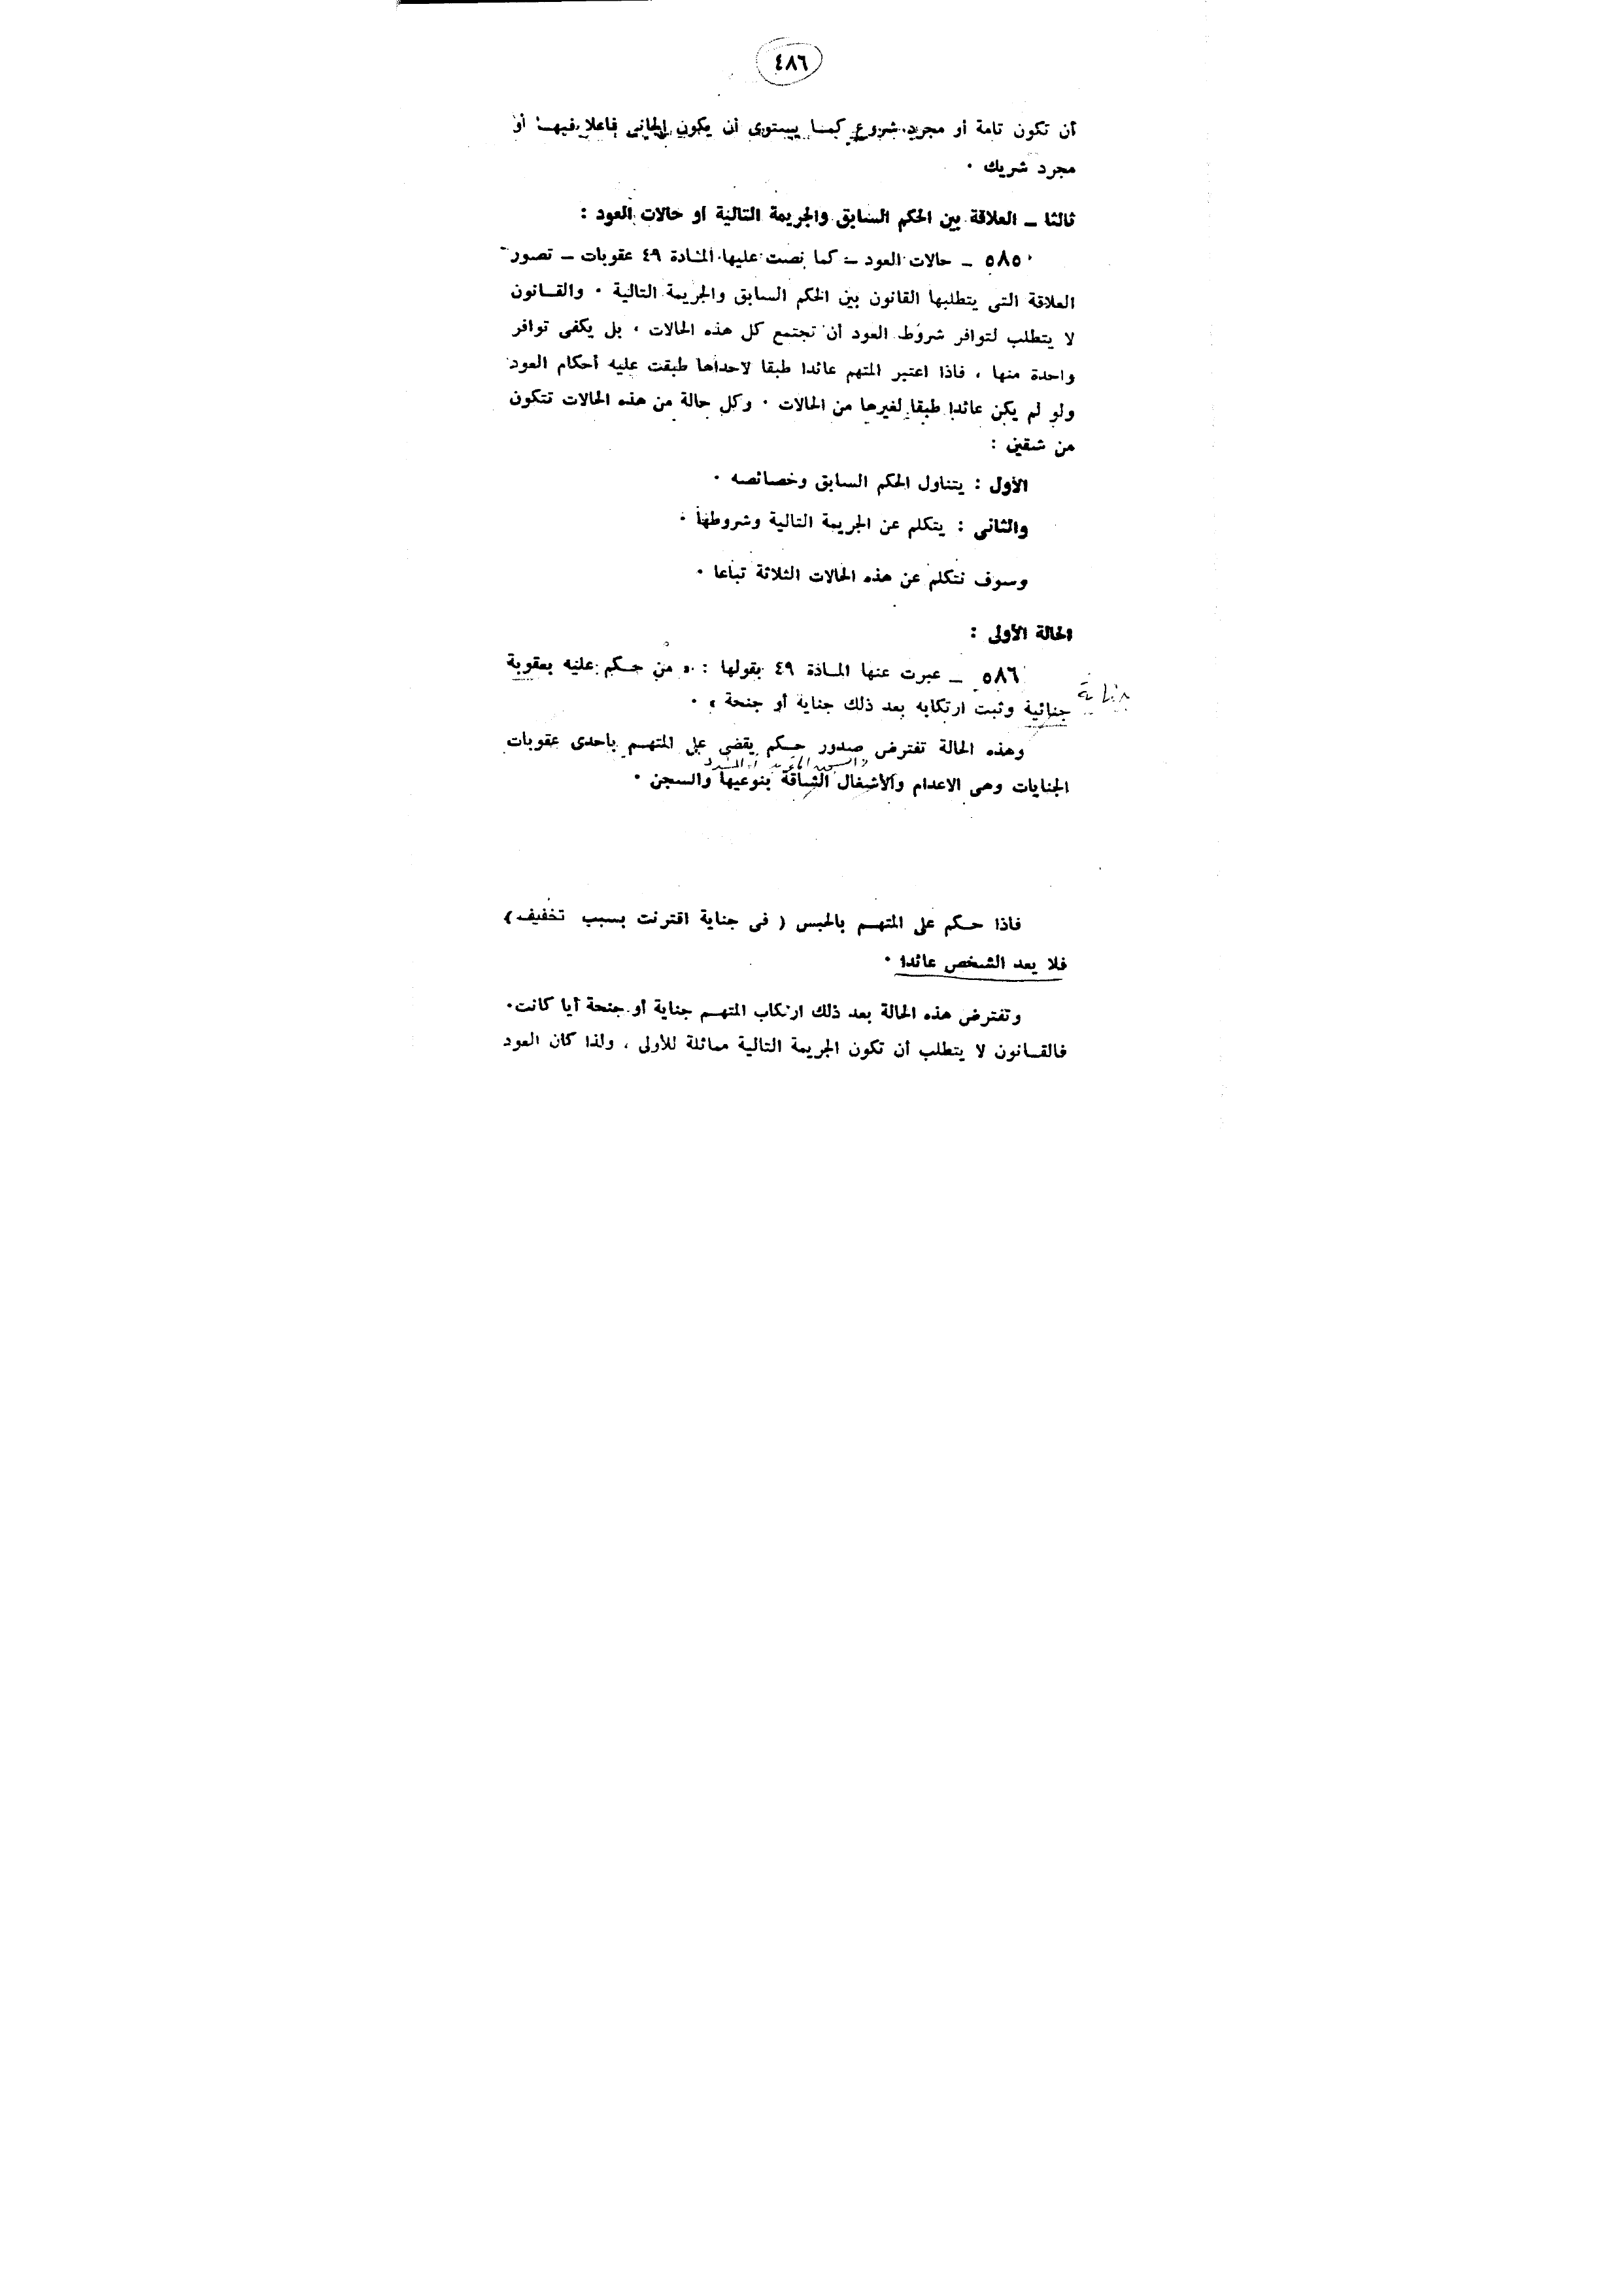 ٤٨٦
أن تكون تامة أو مجرد شروع كما يستوى أن يكون الجانى فاعلا فيها أو
مجرد شريك ٠
ثالثا ــ العلاقة بين الحكم السابق والجريمة التالية أو حالات العود :
٥٨٥ ــ حالات العود ــ كما نصت عليها المادة ٤٩ عقوبات ــ تصور
العلاقة التى يتطلبها القانون بين الحكم السابق والجريمة التالية ٠ والقانون
لا يتطلب لتوافر شروط العود أن تجتمع كل هذه الحالات ، بل يكفى توافر
واحدة منها ، فاذا اعتبر المتهم عائدا طبقا لاحداها طبقت عليه أحكام العود
ولو لم يكن عائدا طبقا لغيرها من الحالات ٠ وكل حالة من هذه الحالات تتكون
من شقين :
الأول : يتناول الحكم السابق وخصائصه ٠
والثانى : يتكلم عن الجريمة التالية وشروطها ٠
وسوف نتكلم عن هذه الحالات الثلاثة تباعا ٠
الحالة الأولى :
٥٨٦ ــ عبرت عنها المادة ٤٩ بقولها : « من حكم عليه بعقوبة
جنائية وثبت ارتكابه بعد ذلك جناية أو جنحة » ٠
جناية
وهذه الحالة تفترض صدور حكم يقضى على المتهم باحدى عقوبات
السجن المؤبد أو المشدد
الجنايات وهى الاعدام والأشغال الشاقة بنوعيها والسجن ٠
فاذا حكم على المتهم بالحبس ( فى جناية اقترنت بسبب تخفيف )
فلا يعد الشخص عائدا ٠
وتفترض هذه الحالة بعد ذلك ارتكاب المتهم جناية أو جنحة أيا كانت ٠
فالقانون لا يتطلب أن تكون الجريمة التالية مماثلة للأولى ، ولذا كان العود